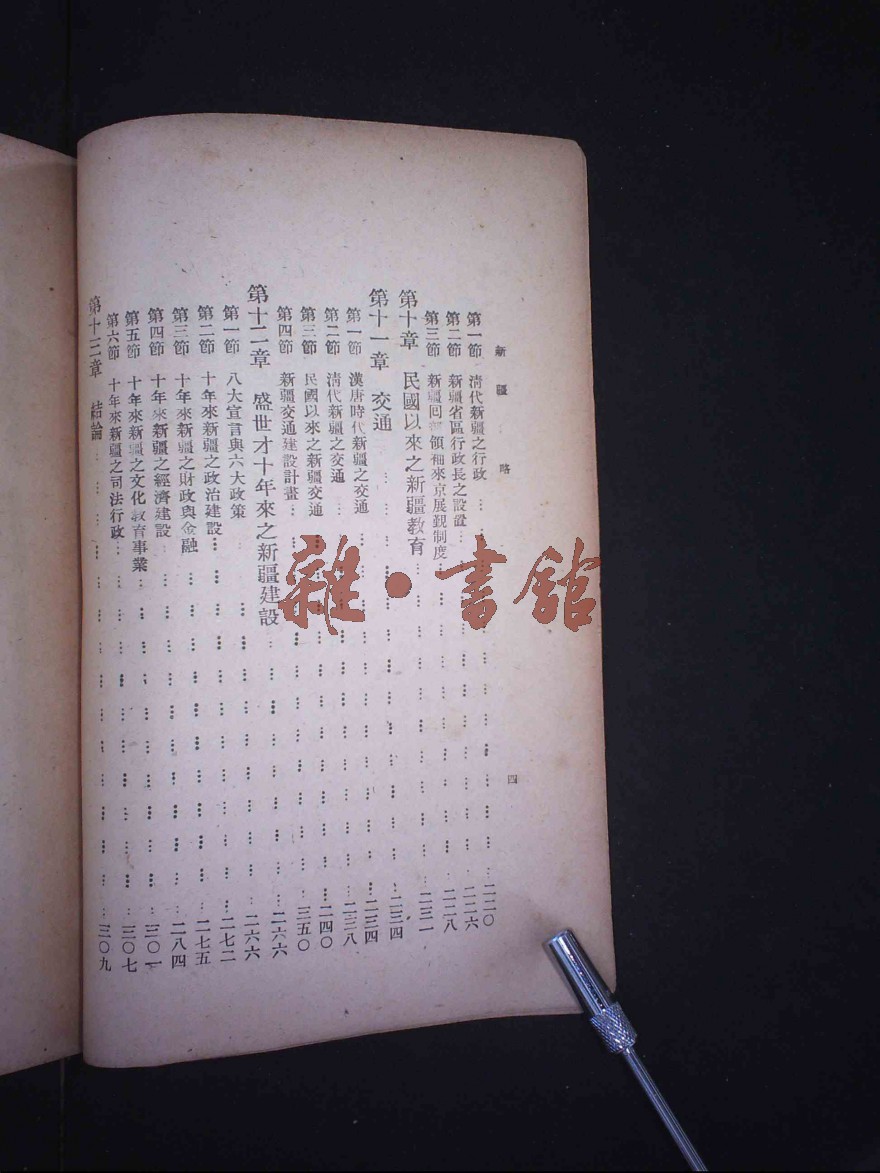 新疆 略 四
第一節 清代新疆之行政 …………二二〇
第二節 新疆省區行政長之設置 …………二二六
第三節 新疆回 領袖來京展覲制度 …………二二八
第十章 民國以來之新疆教育 …………二三一
第十一章 交通 …………二三四
第一節 漢唐時代新疆之交通 …………二三四
第二節 清代新疆之交通 …………二三八
第三節 民國以來之新疆交通 …………二四〇
第四節 新疆交通建設計畫 …………三五〇
第十二章 盛世才十年來之新疆建設 …………二六六
第一節 八大宣言與六大政策 …………二六六
第二節 十年來新疆之政治建設 …………二七二
第三節 十年來新疆之財政與金融 …………二七五
第四節 十年來新疆之經濟建設 …………二八四
第五節 十年來新疆之文化教育事業 …………三〇一
第六節 十年來新疆之司法行政 …………三〇七
第十三章 結論 …………三〇九
雜·書館